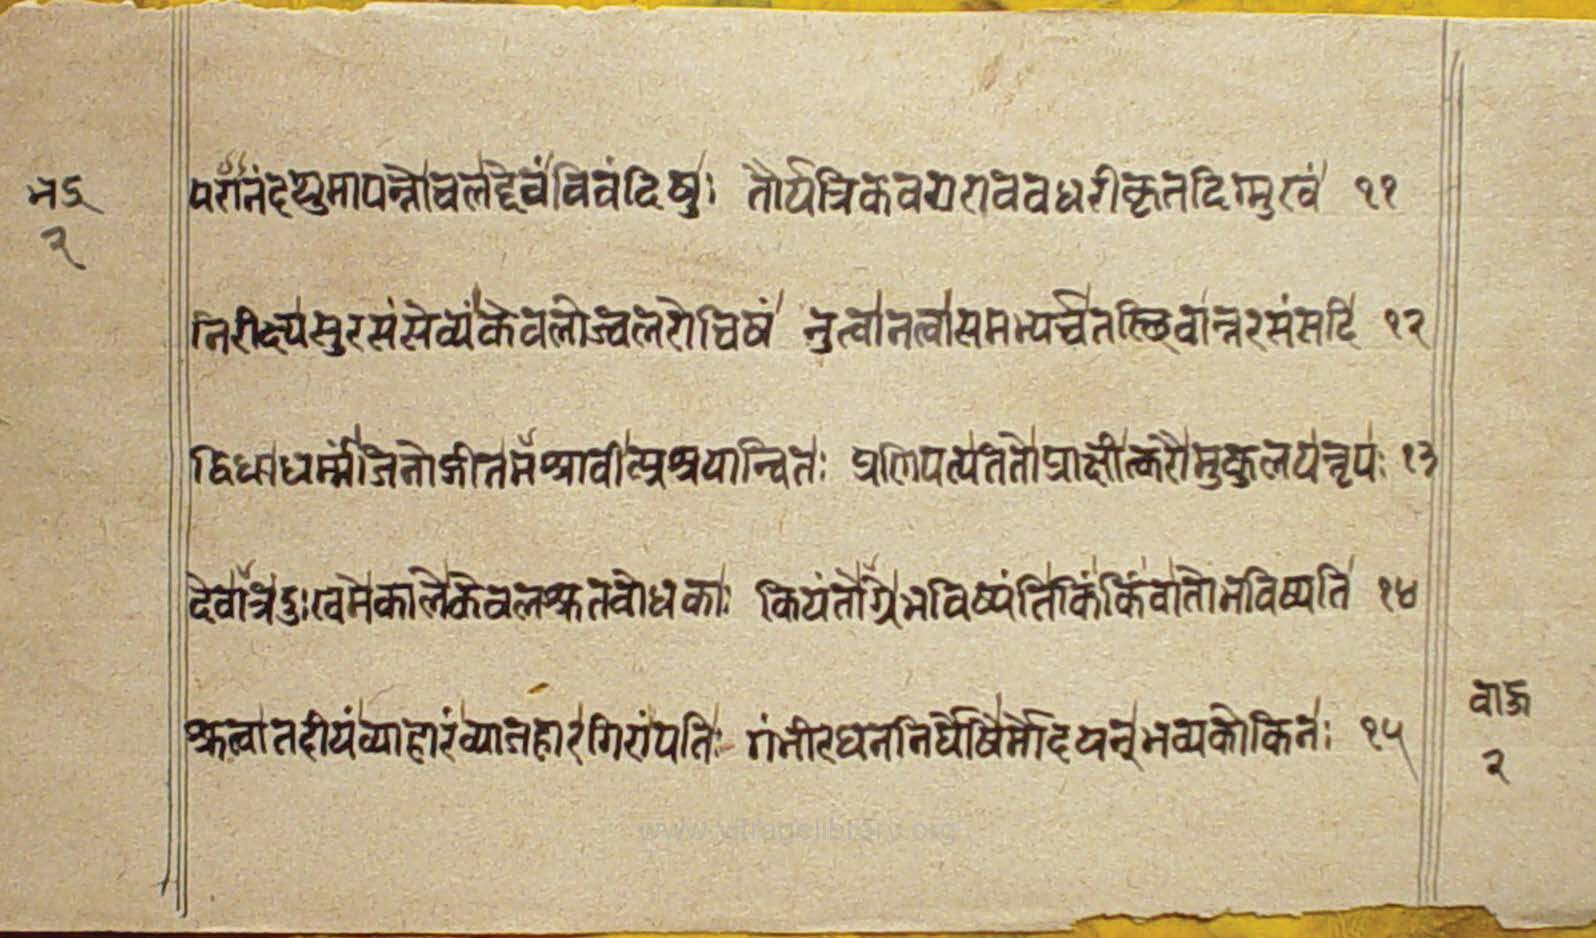 भद्र
२
परानंदद्युमापन्नोचलद्देवंविवंदिषुः तौर्यत्रिकवग्रराववधरीकृतदिग्मुखं ११
निरीक्ष्यसुरसंसेव्यंकेवलोज्वलरोचिषं नुत्वानत्वासमभ्यर्च्चतस्थिवान्नरसंसदि १२
द्विधाधर्म्मंजिनोङ्गीतमश्रावीत्प्रश्रयान्वितः प्रणिपत्यततोप्राक्षीत्करौमुकुलयन्नृपः १३
देवात्रदुःखमेकालेकेवलश्रुतबोधकाः कियंतोग्रेभविष्यंतिकिंकिंवातोभविष्यति १४
श्रुत्वातदीयंव्याहारंव्याजहारगिरांपतिः गंभीरघननिर्घोषैर्मोदयन्भव्यकेकिनः १५
२
www.vitragelibrary.org